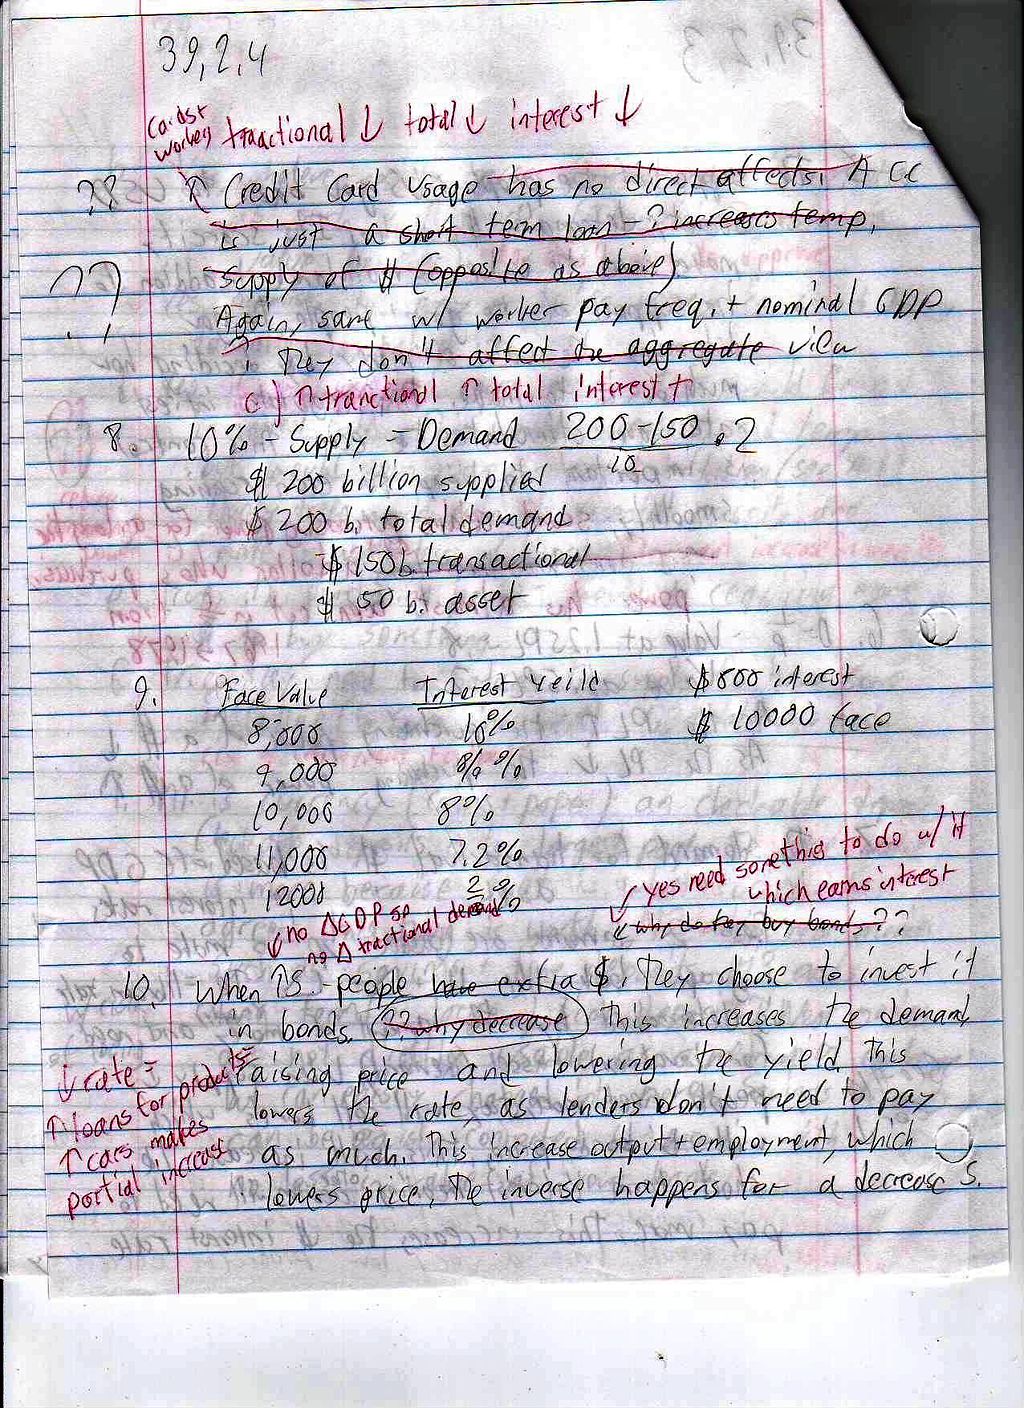 39,2,4
Cards+
worker tranctional ↓ total ↓ interest ↓
?? ↑ Credit Card Usage has no direct affects. A CC
is just a short term loan - ? increases temp.
supply of $ (opposite as above)
?? Again, same w/ worker pay freq. + nominal GDP
? They don't affect the aggregate view
c) ↑ tranctional ↑ total interest ↑
8. 10% - Supply - Demand 200-150 .2
10
$ 200 billion supplied
$ 200 b. total demand
$ 150 b. transactional
$ 50 b. asset
9. Face Value Interest Yeild $800 interest
8,000 10% $ 10000 face
9,000 %
10,000 8%
11,000 7.2%
12000 %
✓ yes need somethig to do w/ it
which earns interest
✓ no ΔGDP so
no Δ tractional demand
why do they buy bonds ??
10. When ↑S - people have extra $, They choose to invest it
in bonds. ?? why decrease This increases the demand,
raising price and lowering the yield. This
lowers the rate, as lenders don't need to pay
as much. This increase output + employment, which
lowers price, The inverse happens for a decrease S.
↓ rate =
↑ loans for products=
↑ cars makes
partial increase